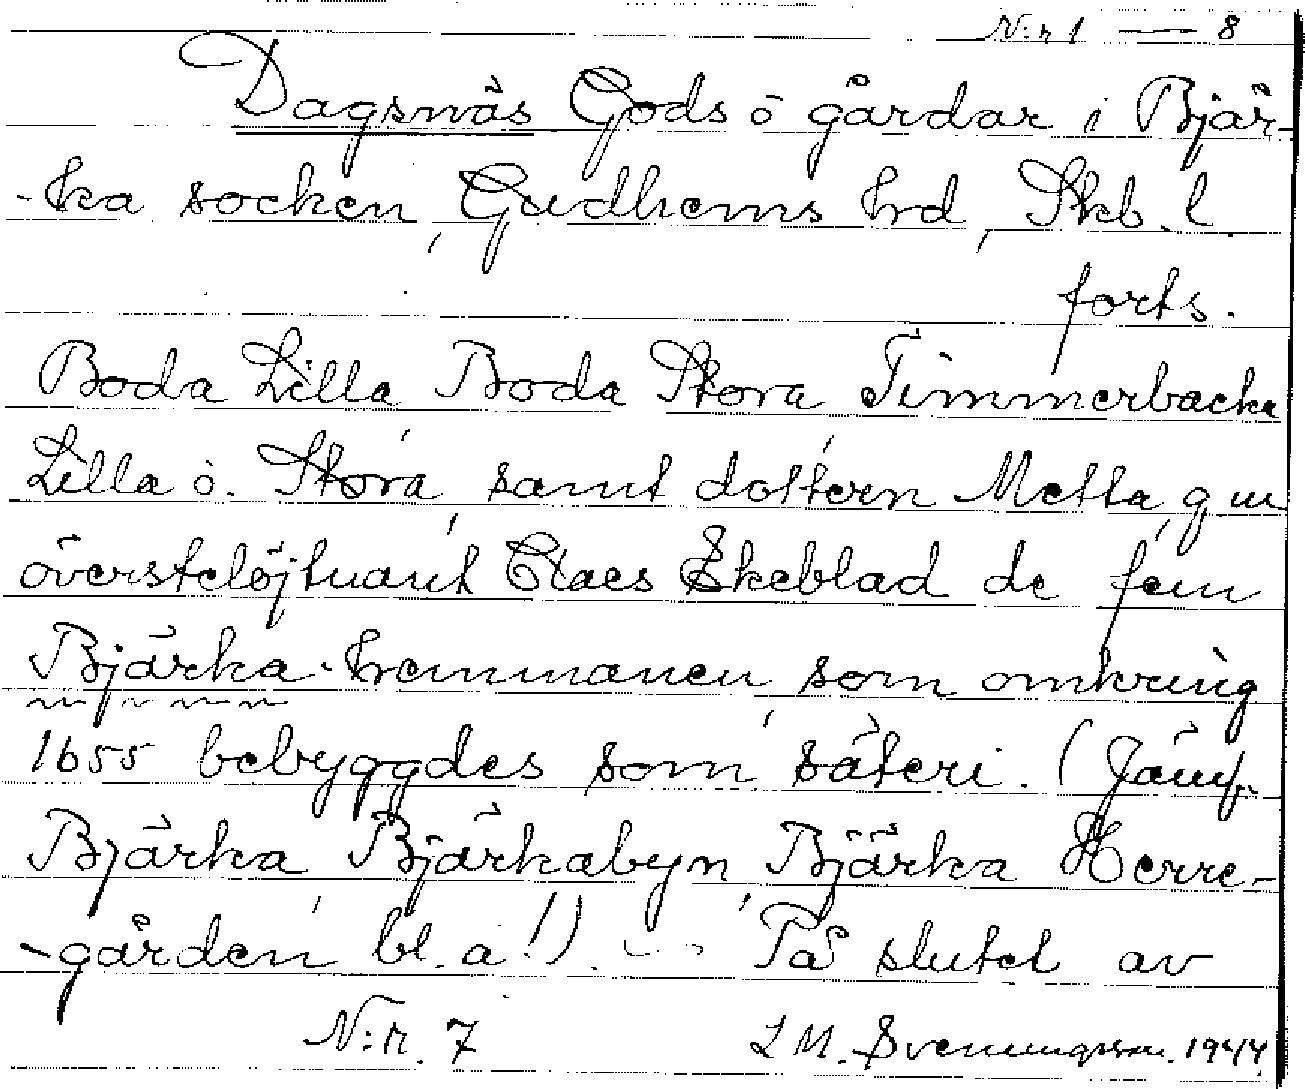 N:r 1 — 8
Dagsnäs Gods ō gårdar i Bjär-
-ka socken, Gudhems hrd, Skb. l.
forts.
Boda Lilla Boda Stora Timmerbacka
Lilla ō. Stora, samt dottern Metta, g m
överstelöjtnant Claes Ekeblad de fem
Bjärka-hemmanen som omkring
1655 bebyggdes som, säteri. (Jämf.
Bjärka Bjärkabyn, Bjärka Herre-
-gården, bl. a!). — På slutet av
N:r. 7 L M. Svenungsson. 1944